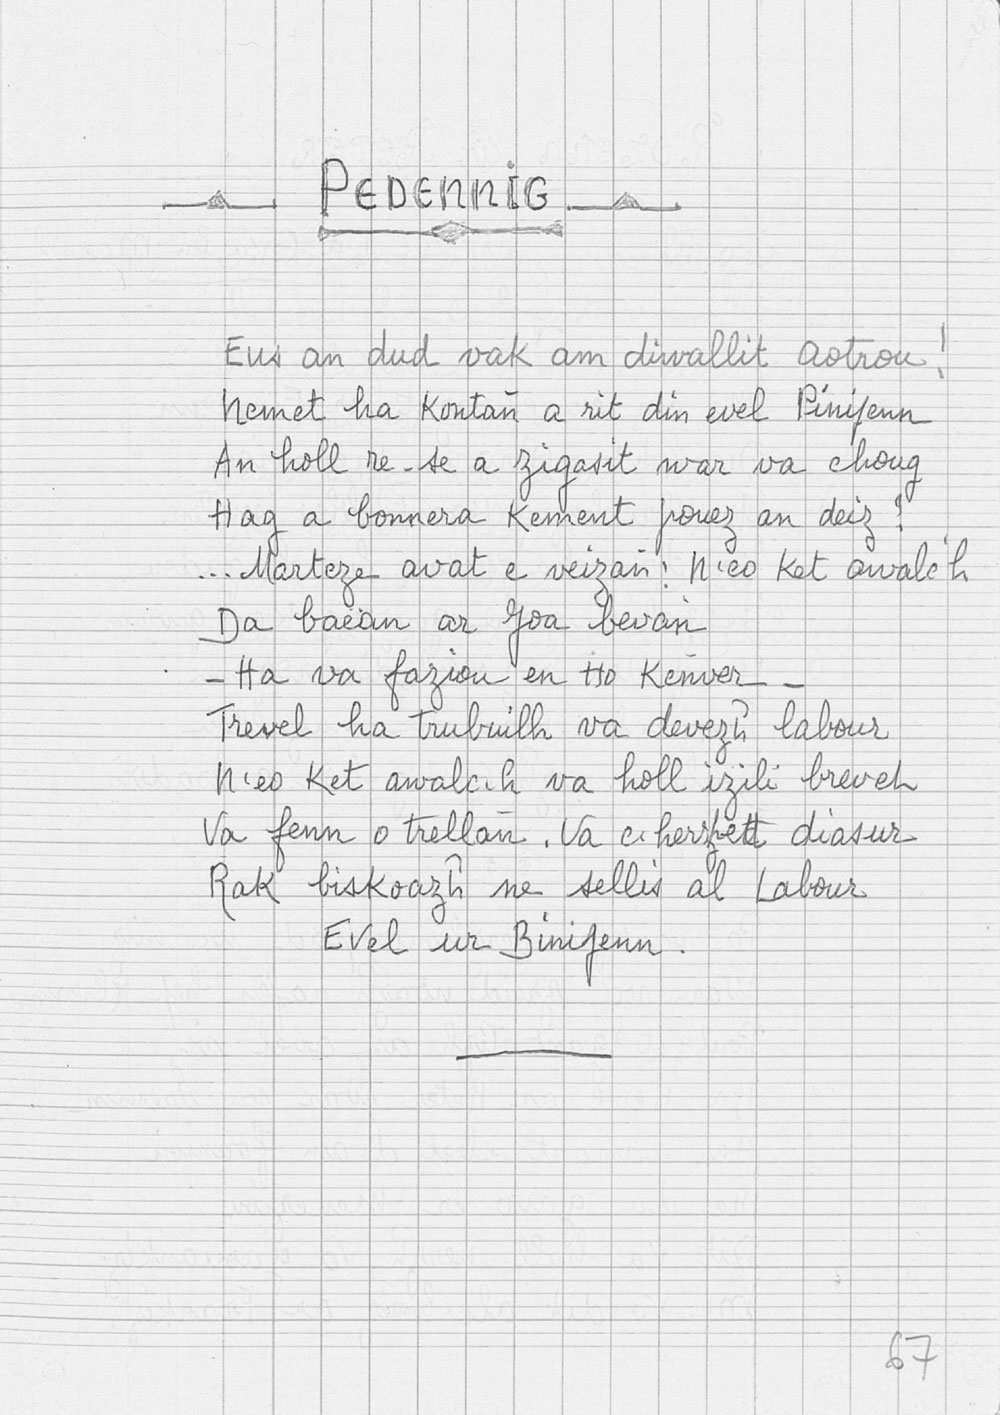 PEDENNIG
Eus an dud vak am diwallit Aotrou !
Nemet ha Kontañ a rit din evel Pinijenn
An holl re-se a zigasit war va choug
Hag a bonnera Kement pouez an deiz !
... Marteze avat e veizañ : N'eo Ket awalc'h
Da baëan ar Joa bevañ
- Ha va faziou en Ho Keñver -
Trevel ha trubuilh va devezh labour
N'eo Ket awalc'h va holl izili breveh
Va fenn o trellañ . Va c'herzhett diasur
Rak biskoazh ne sellis al Labour
Evel ur Binijenn .
67